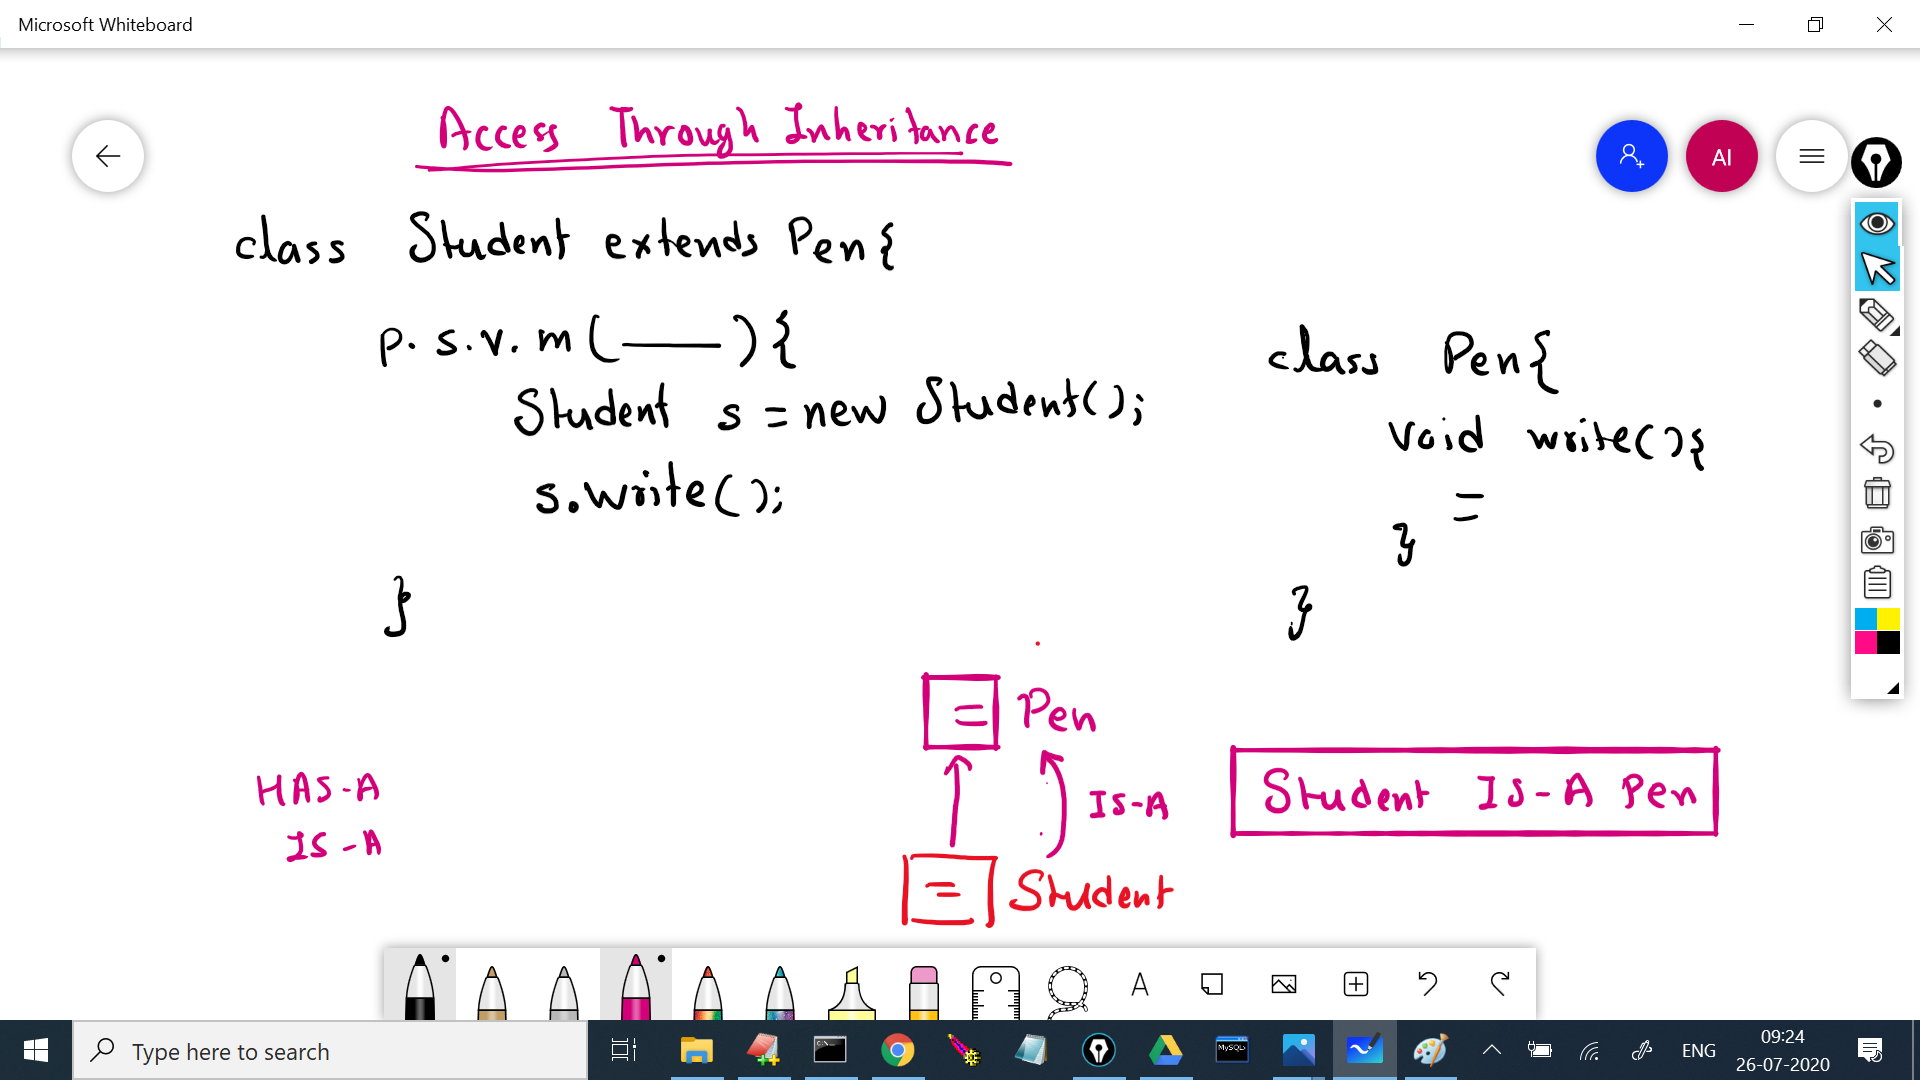 Microsoft Whiteboard
Access Through Inheritance
AI
class Student extends Pen{
p.s.v.m(——){
Student s = new Student();
s.write();
}
class Pen{
void write(){
=
}
}
= Pen
HAS-A
IS-A
IS-A
Student IS-A Pen
= Student
A
Type here to search
C:\_
MySQL
ENG
09:24
26-07-2020